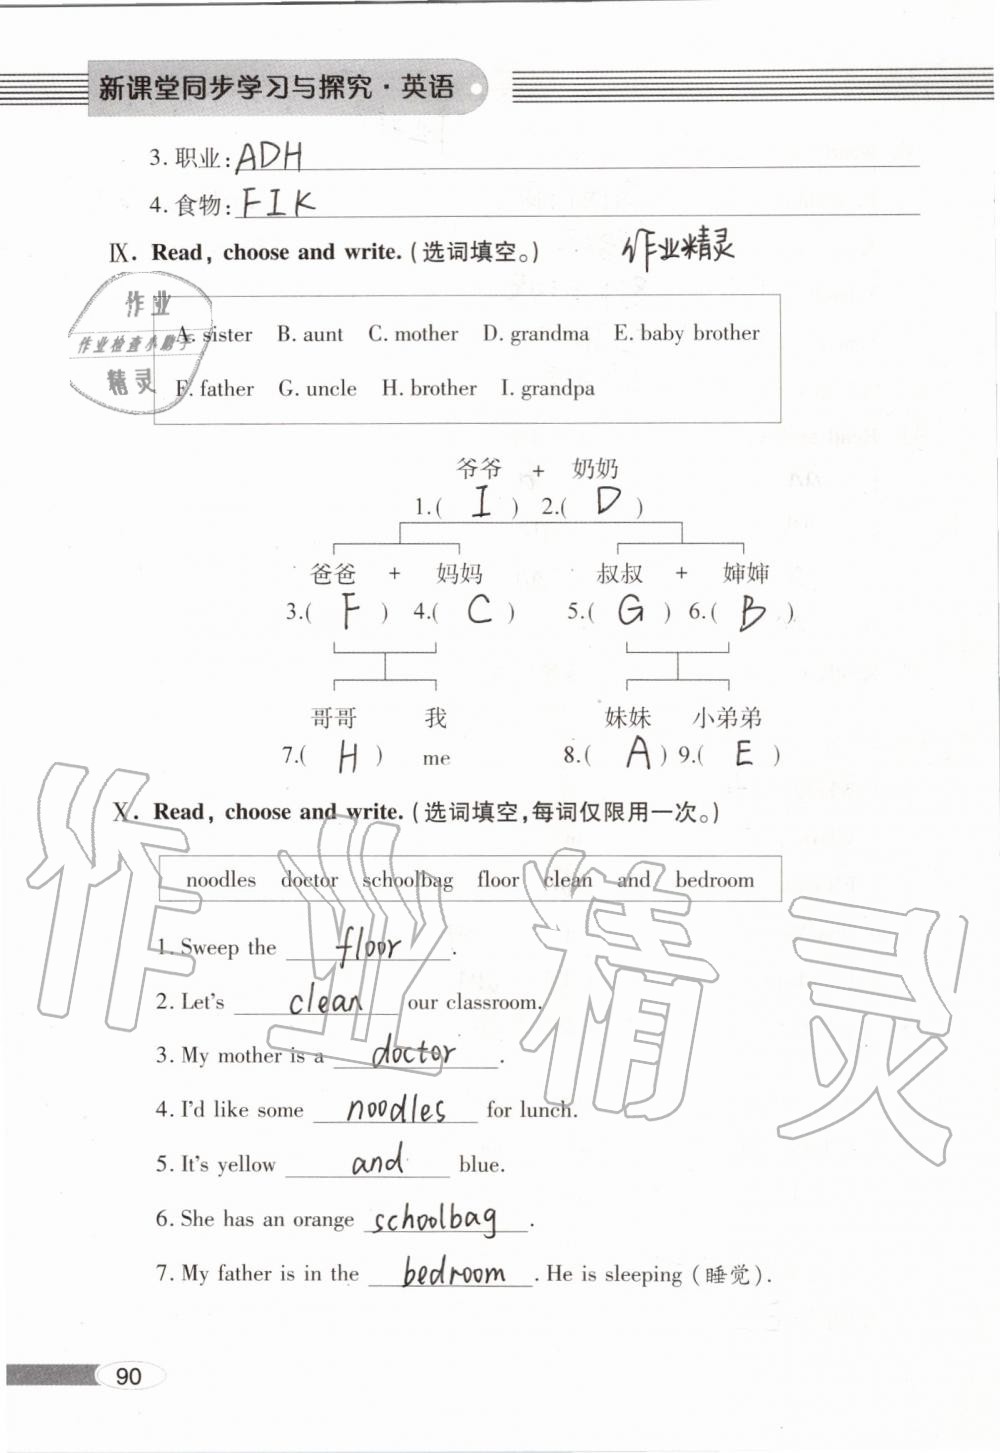 新课堂同步学习与探究·英语
3. 职业: ADH
4. 食物: FIK
Ⅸ. Read, choose and write. (选词填空。) 作业精灵
作业
作业检查小助手
精灵
A. sister B. aunt C. mother D. grandma E. baby brother
F. father G. uncle H. brother I. grandpa
爷爷 + 奶奶
1.( I ) 2.( D )
爸爸 + 妈妈 叔叔 + 婶婶
3.( F ) 4.( C ) 5.( G ) 6.( B )
哥哥 我 妹妹 小弟弟
7.( H ) me 8.( A ) 9.( E )
Ⅹ. Read, choose and write. (选词填空,每词仅限用一次。)
noodles doctor schoolbag floor clean and bedroom
1. Sweep the floor.
2. Let's clean our classroom.
3. My mother is a doctor.
4. I'd like some noodles for lunch.
5. It's yellow and blue.
6. She has an orange schoolbag.
7. My father is in the bedroom. He is sleeping (睡觉).
作业精灵
90